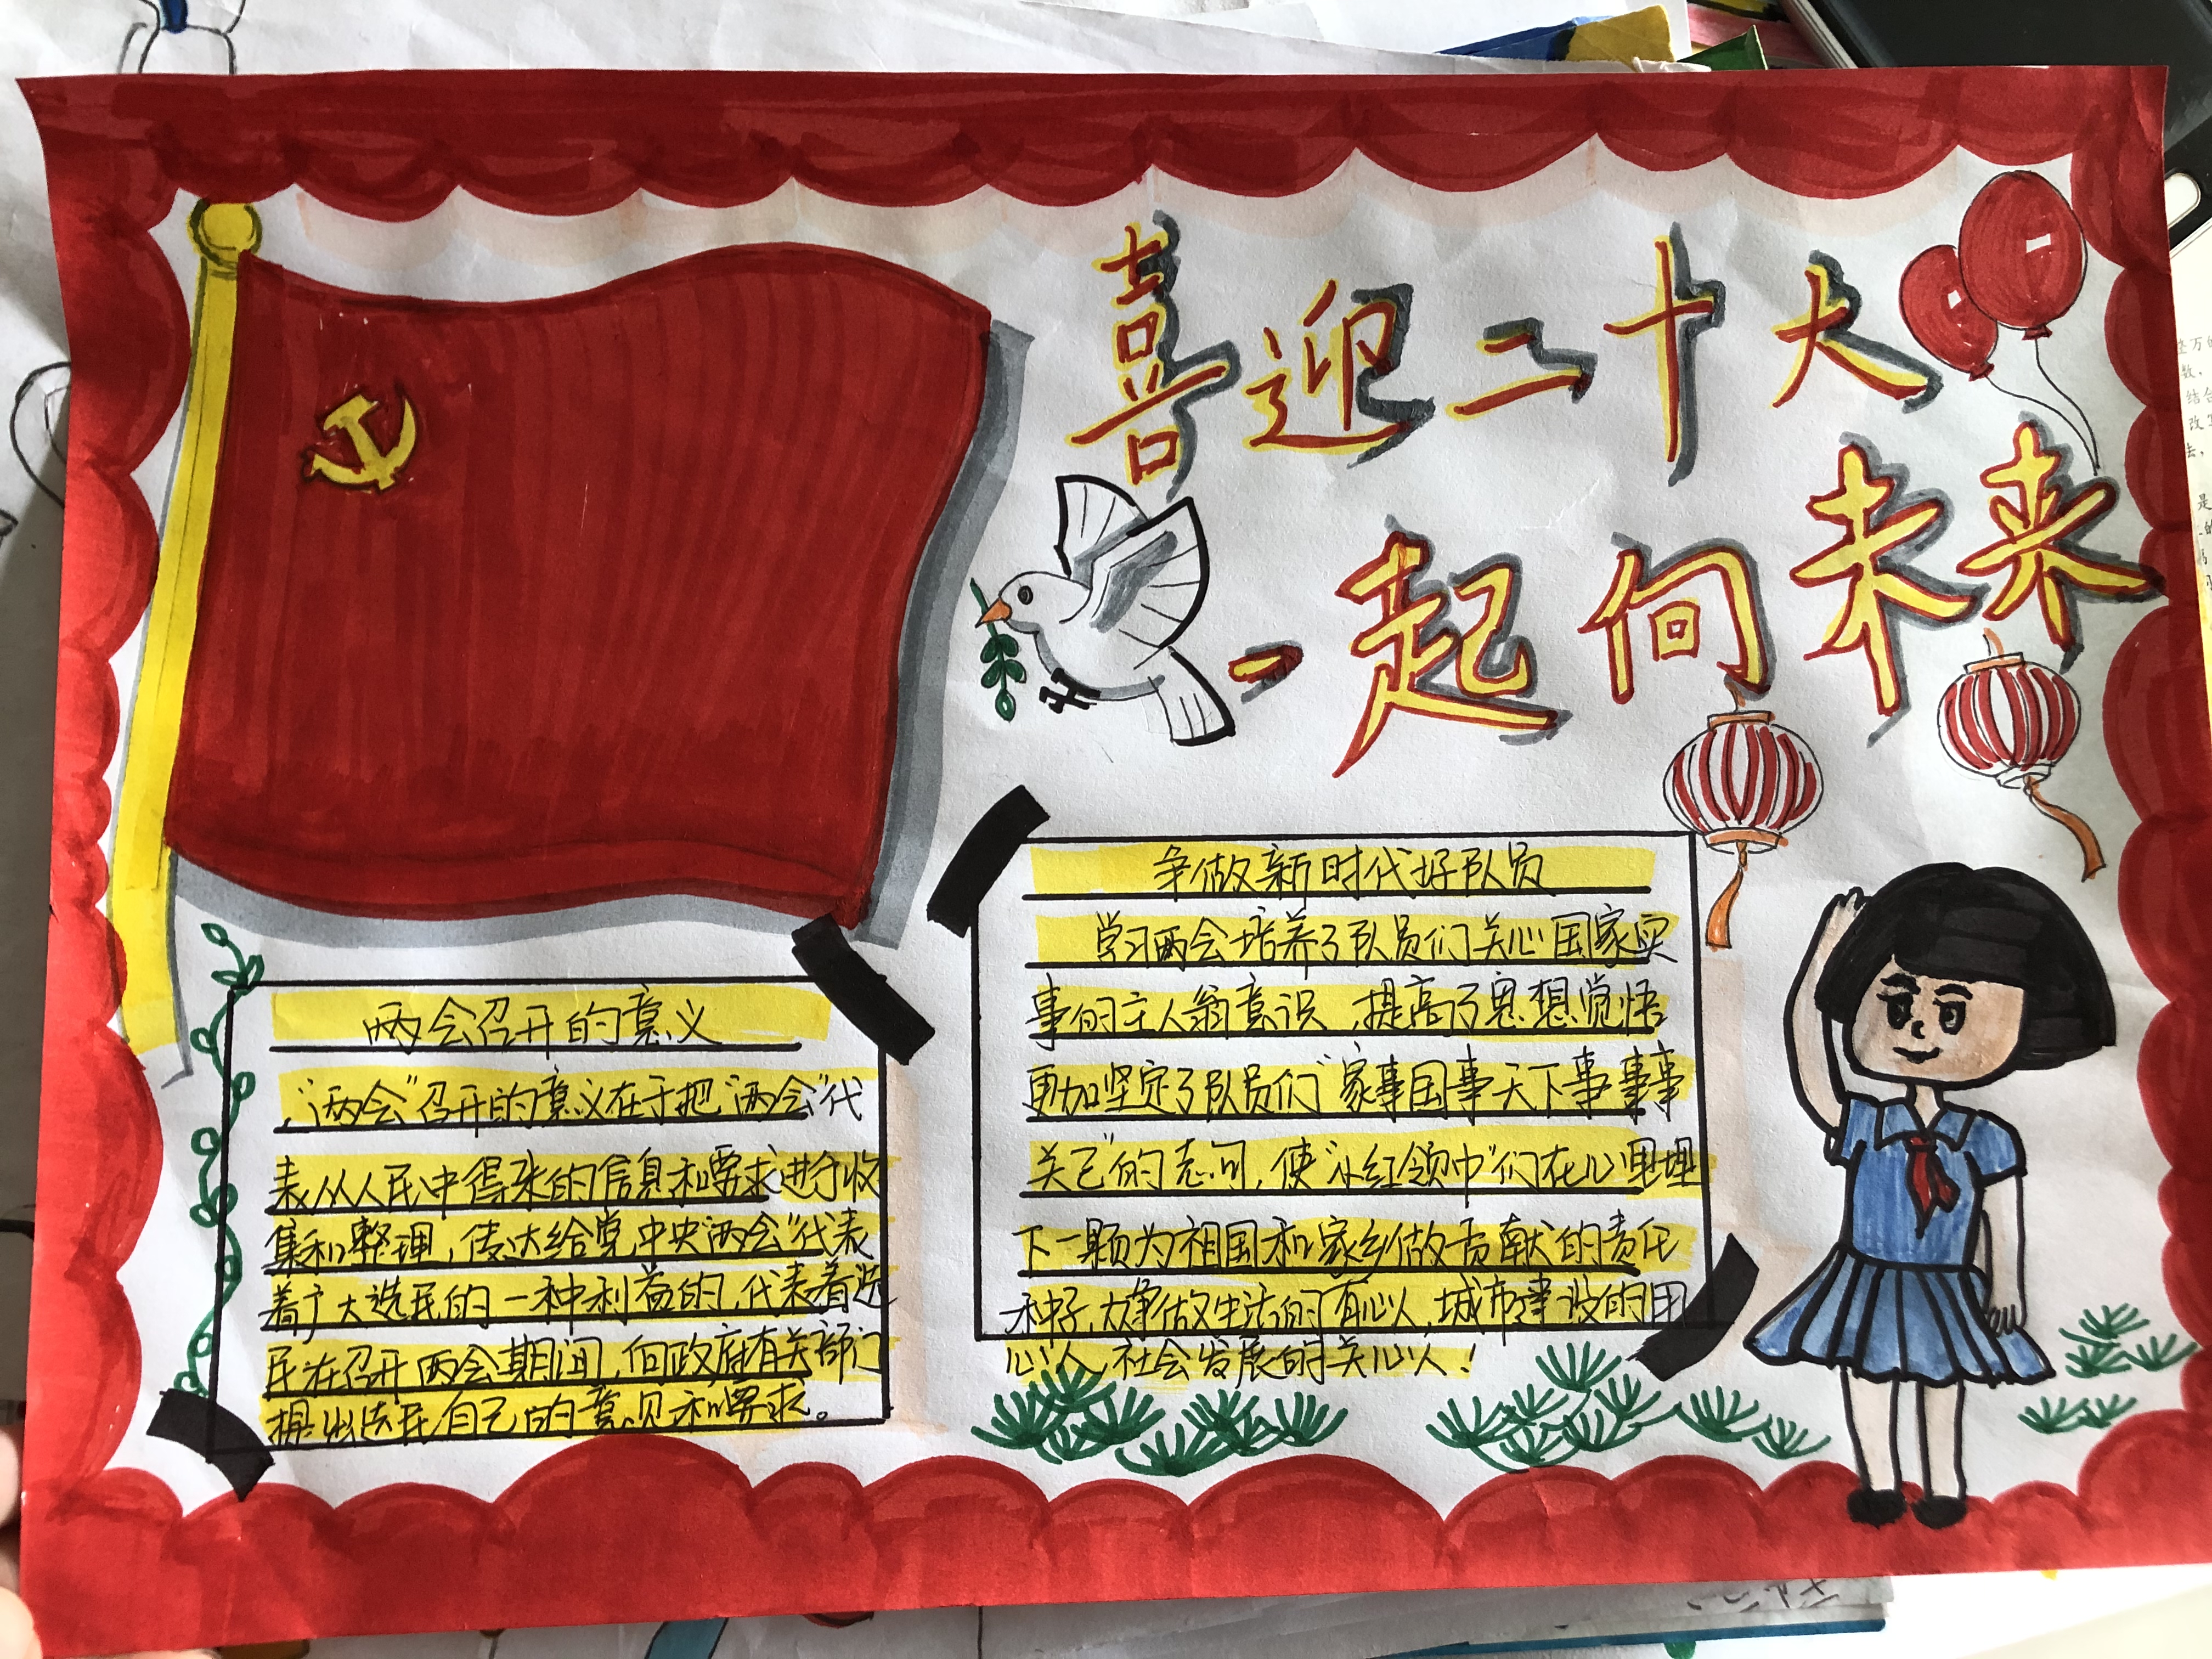 喜迎二十大
一起向未来
两会召开的意义
"两会"召开的意义在于把"两会"代
表从人民中得来的信息和要求进行收
集和整理，传达给党中央"两会"代表
着广大选民的一种利益的，代表着选
民在召开两会期间，向政府有关部门
提出选民自己的意见和要求。
争做新时代好队员
学习两会培养了队员们关心国家实
事的主人翁意识，提高了思想觉悟
更加坚定了队员们"家事国事天下事事事
关己"的志向，使"小红领巾"们在心里埋
下一颗为祖国和家乡做贡献的责任
种子，大争做生活的有心人，城市建设的用
心人，社会发展的关心人！